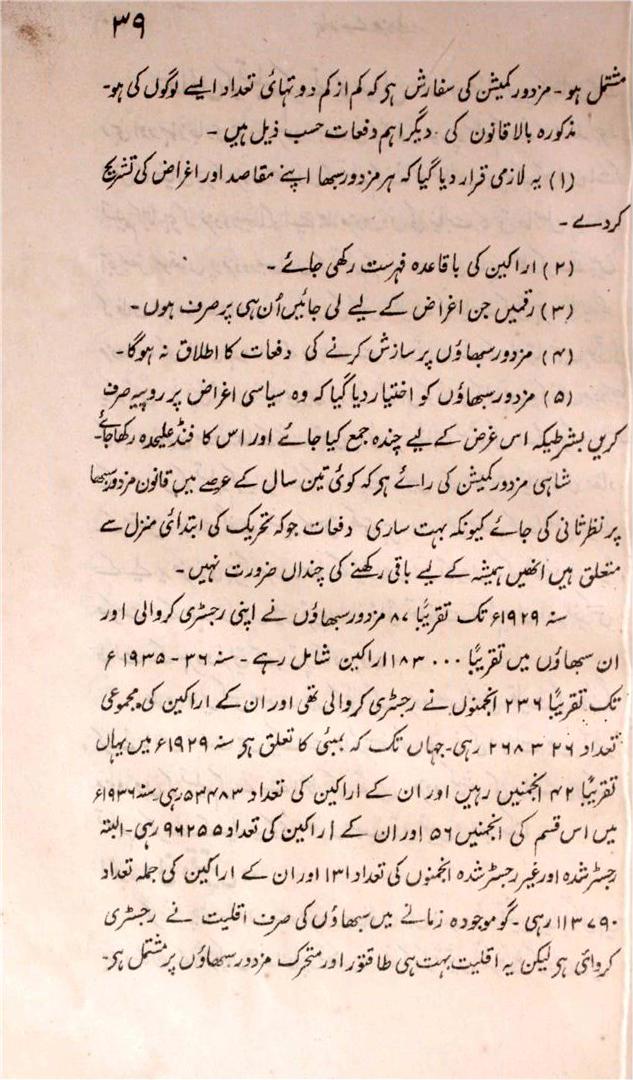 ۳۹
مشتمل ہو - مزدور کمیشن کی سفارش ہو کہ کم از کم دو تہائی تعداد ایسے لوگوں کی ہو-
مذکورہ بالا قانون کی دیگر اہم دفعات حسب ذیل ہیں -
(۱) یہ لازمی قرار دیا گیا کہ ہر مزدور سبھا اپنے مقاصد اور اغراض کی تشریح
کر دے -
(۲) اراکین کی باقاعدہ فہرست رکھی جائے -
(۳) رقمیں جن اغراض کے لیے لی جائیں اُن ہی پر صرف ہوں -
(۴) مزدور سبھاؤں پر سازش کرنے کی دفعات کا اطلاق نہ ہوگا -
(۵) مزدور سبھاؤں کو اختیار دیا گیا کہ وہ سیاسی اغراض پر روپیہ صرف
کریں بشرطیکہ اس غرض کے لیے چندہ جمع کیا جائے اور اس کا فنڈ علیحدہ رکھا جائے-
شاہی مزدور کمیشن کی رائے ہو کہ کوئی تین سال کے عرصے میں قانون مزدور سبھا
پر نظر ثانی کی جائے کیونکہ بہت ساری دفعات جو کہ تحریک کی ابتدائی منزل سے
متعلق ہیں انھیں ہمیشہ کے لیے باقی رکھنے کی چنداں ضرورت نہیں -
سنہ ۱۹۲۹ء تک تقریبًا ۸۷ مزدور سبھاؤں نے اپنی رجسٹری کروالی اور
ان سبھاؤں میں تقریبًا ۱۸۳۰۰۰ اراکین شامل رہے - سنہ ۳۶ - ۱۹۳۵ء
تک تقریبًا ۲۳۶ انجمنوں نے رجسٹری کروالی تھی اور ان کے اراکین کی مجموعی
تعداد ۲۶۸۳۲۶ رہی - جہاں تک کہ بمبئی کا تعلق ہو سنہ ۱۹۲۹ء میں یہاں
تقریبًا ۴۲ انجمنیں رہیں اور ان کے اراکین کی تعداد ۵۳۴۸۳ رہی سنہ ۱۹۳۶ء
میں اس قسم کی انجمنیں ۵۶ اور ان کے اراکین کی تعداد ۹۶۲۵۵ رہی - البتہ
رجسٹر شدہ اور غیر رجسٹر شدہ انجمنوں کی تعداد ۱۳۱ اور ان کے اراکین کی جملہ تعداد
۱۱۳۷۹۰ رہی - گو موجودہ زمانے میں سبھاؤں کی صرف اقلیت نے رجسٹری
کروائی ہو لیکن یہ اقلیت بہت ہی طاقتور اور متحرک مزدور سبھاؤں پر مشتمل ہو -